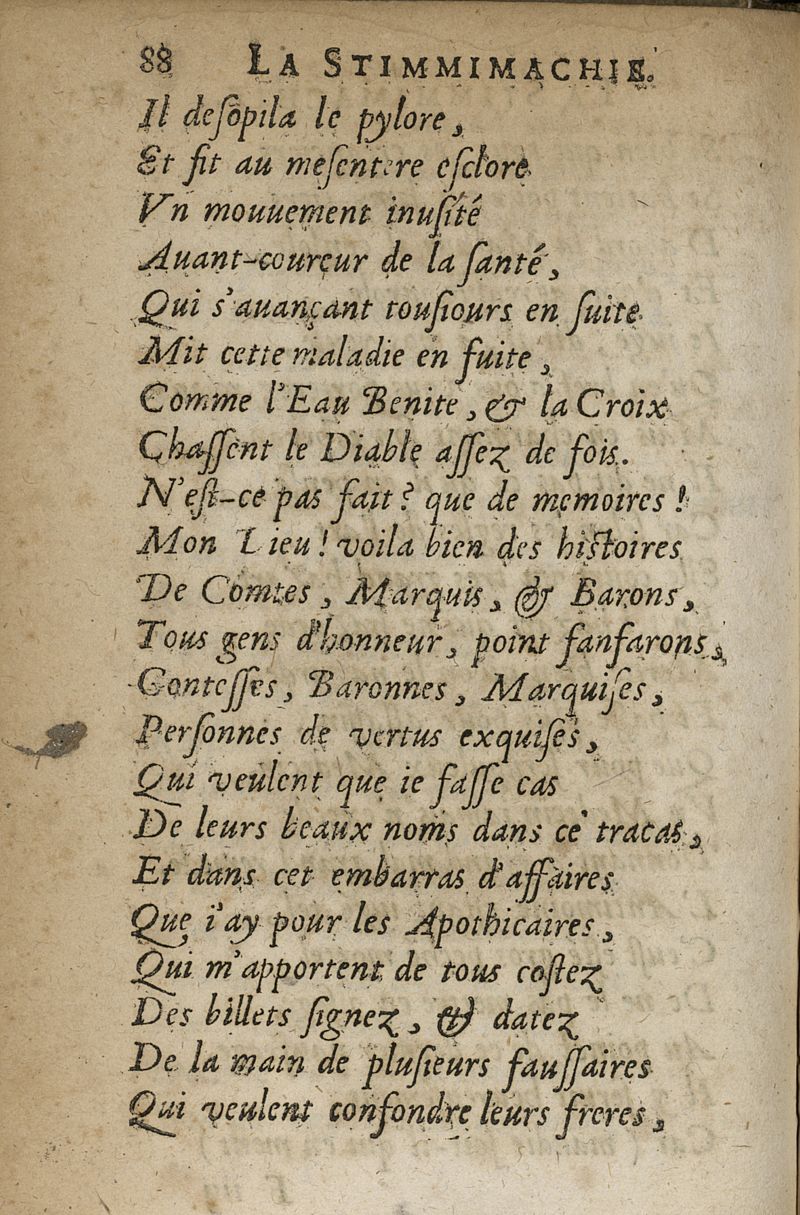 88 LA STIMMIMACHIE.
Il deſopila le pylore,
Et fit au meſentere eſclore
Vn mouuement inuſité
Auant-coureur de la ſanté,
Qui s'auançant touſiours en ſuite
Mit cette maladie en fuite,
Comme l'Eau Benite, & la Croix
Chaſſent le Diable aſſez de fois.
N'eſt-ce pas fait? que de memoires!
Mon Dieu! voila bien des hiſtoires
De Comtes, Marquis, & Barons,
Tous gens d'honneur, point fanfarons,
Conteſſes, Baronnes, Marquiſes,
Perſonnes de vertus exquiſes,
Qui veulent que ie faſſe cas
De leurs beaux noms dans ce tracas,
Et dans cet embarras d'affaires
Que i'ay pour les Apothicaires,
Qui m'apportent de tous coſtez
Des billets ſignez, & datez
De la main de pluſieurs fauſſaires
Qui veulent confondre leurs freres,